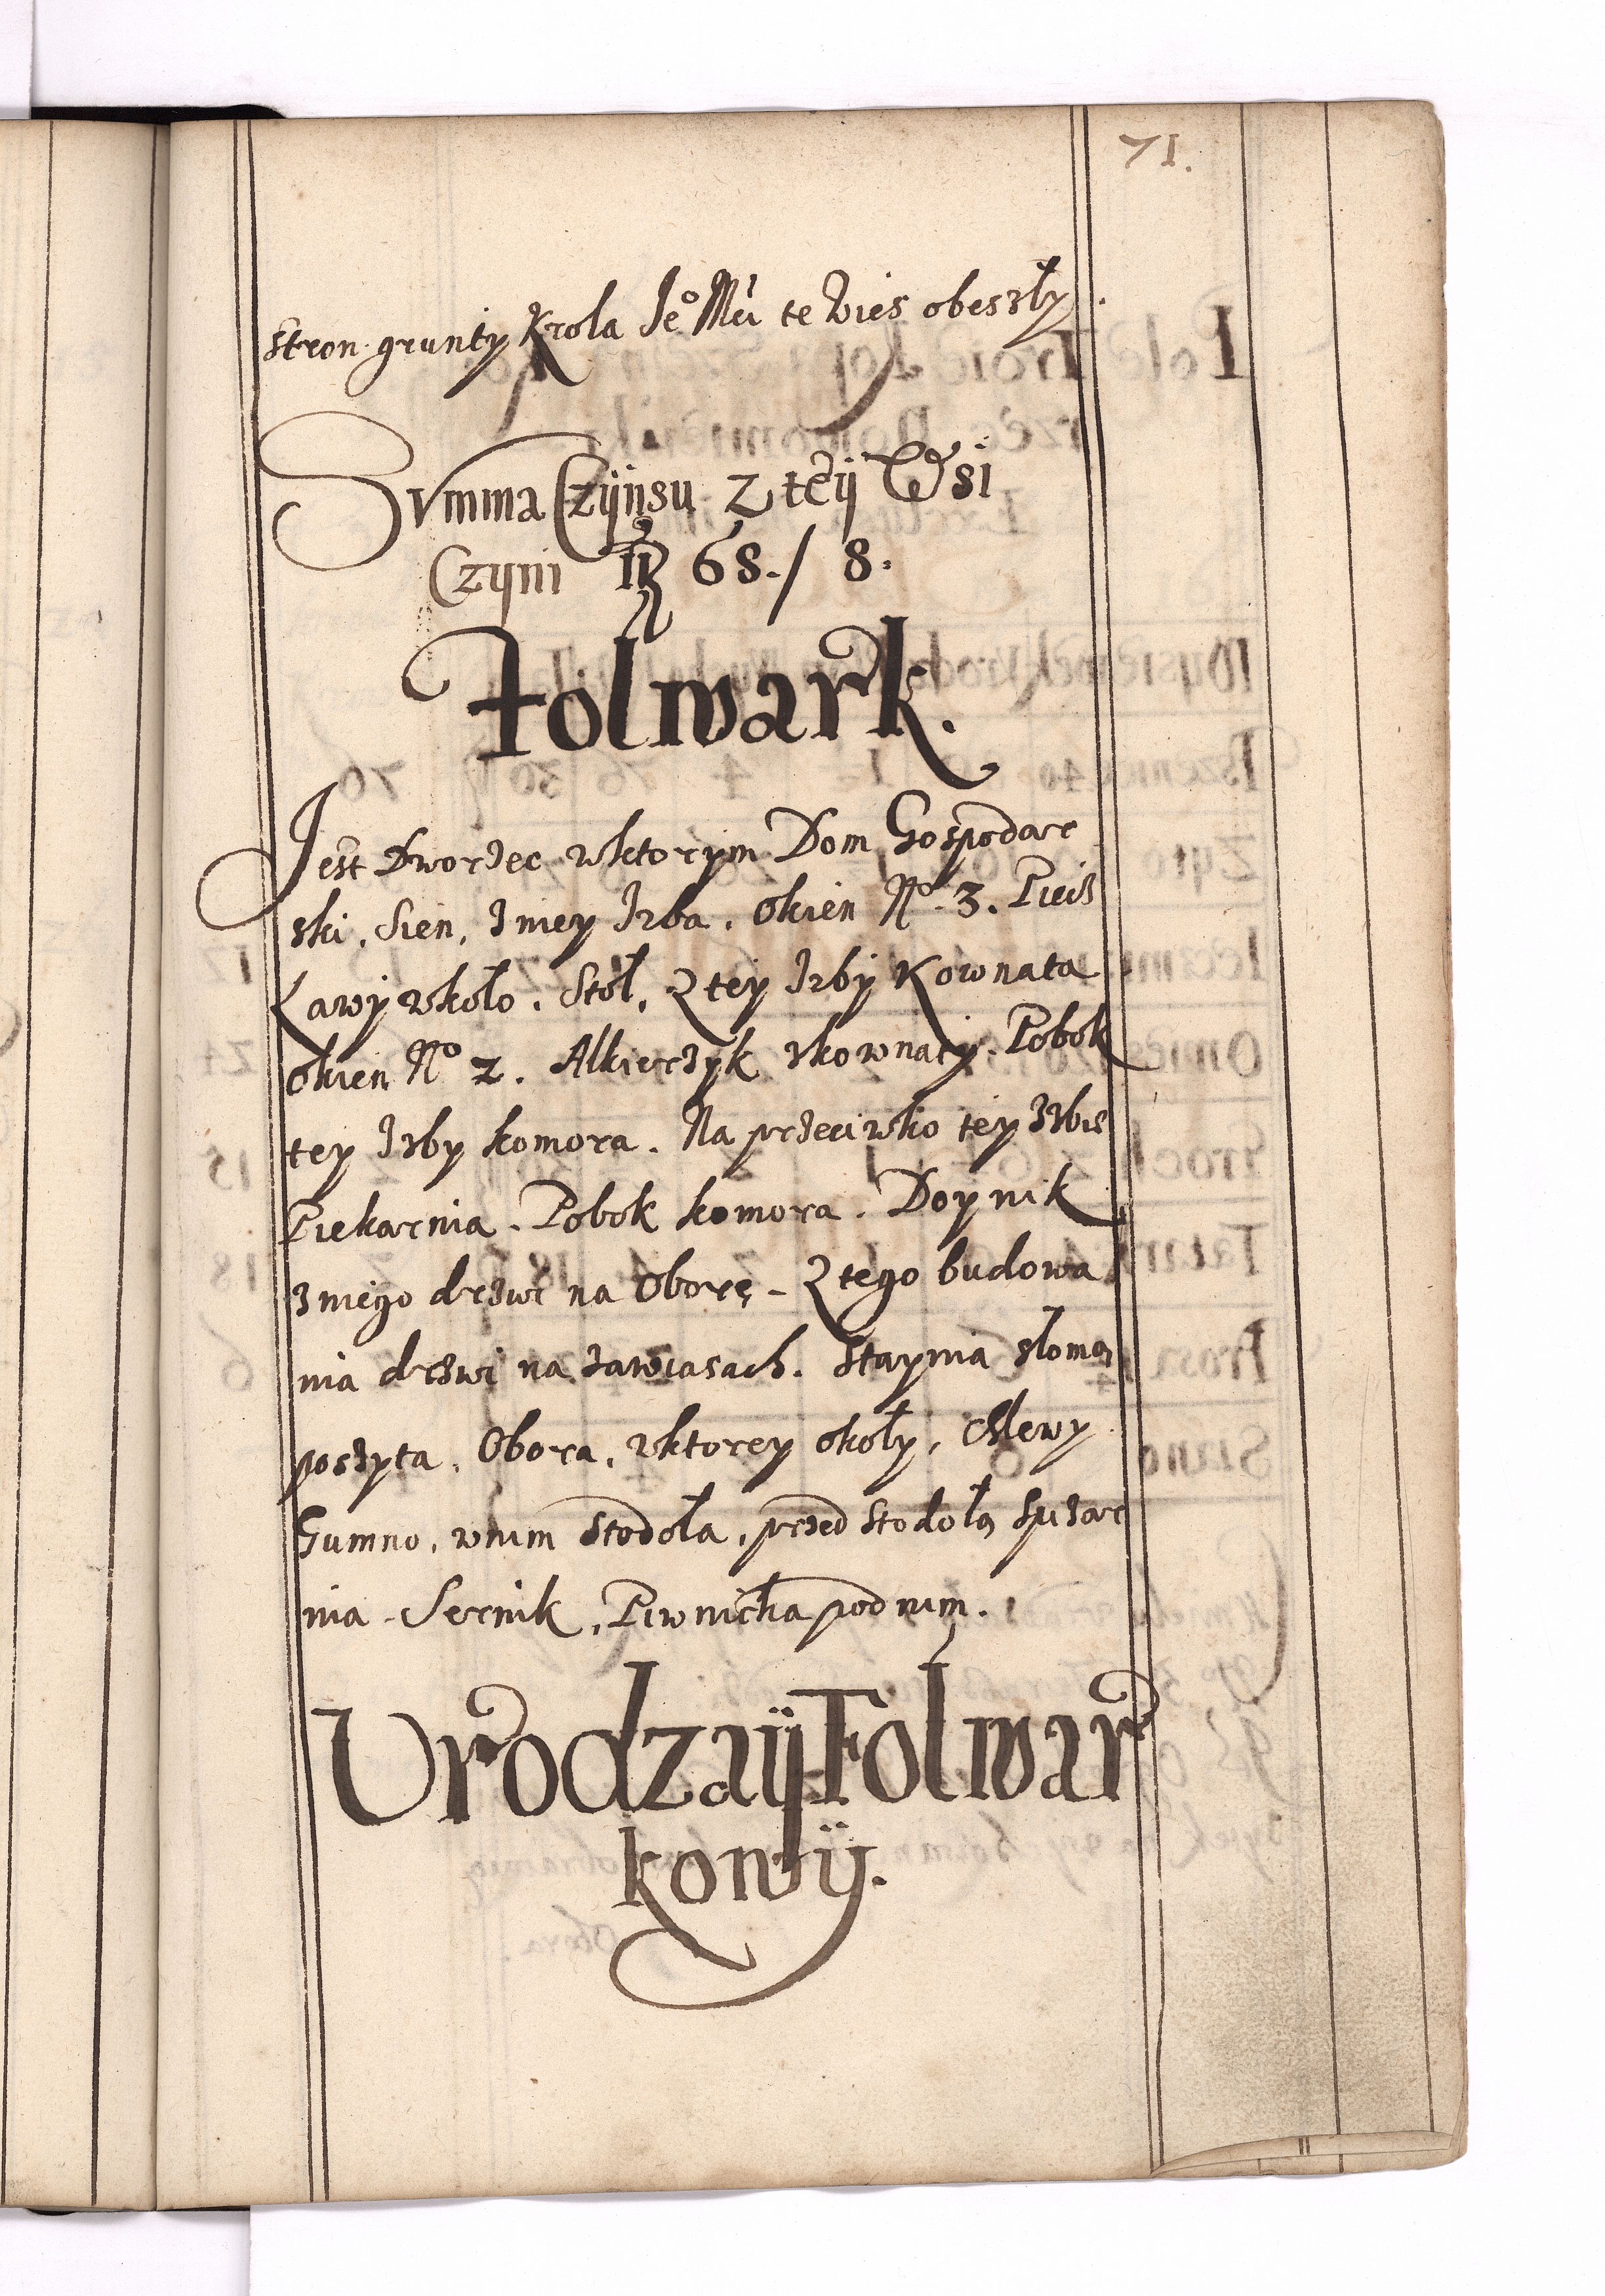 71.
stron grunty Krola Je° Mći te Wies obeszły.
Summa Czÿnsu z teÿ Wsi
Czyni 68./ 8.
Folwark.
Jest Dworzec wktorym Dom Gospodar
ski, Sien, zniey Izba, Okien N° 3. Piecz
Ławÿ wkoło, Stoł, Z tey Izbÿ Kownata
Okien N° 2. Alkierzyk zkownatÿ. Pobok
tey Izby komora. Na przeciwko tey Izbie
Piekarnia. Pobok komora. Doynik
zniego drzwi na Oborę - Z tego budowa
nia drzwi na zawiasach. Staynia słomą
poszyta, Obora, wktorey okoły, Chlewy
Gumno, wnim Stodoła, przed Stodołą Spizar
nia - Sernik, Piwniczka pod nim.
Urodzaÿ Folwar
kowÿ.